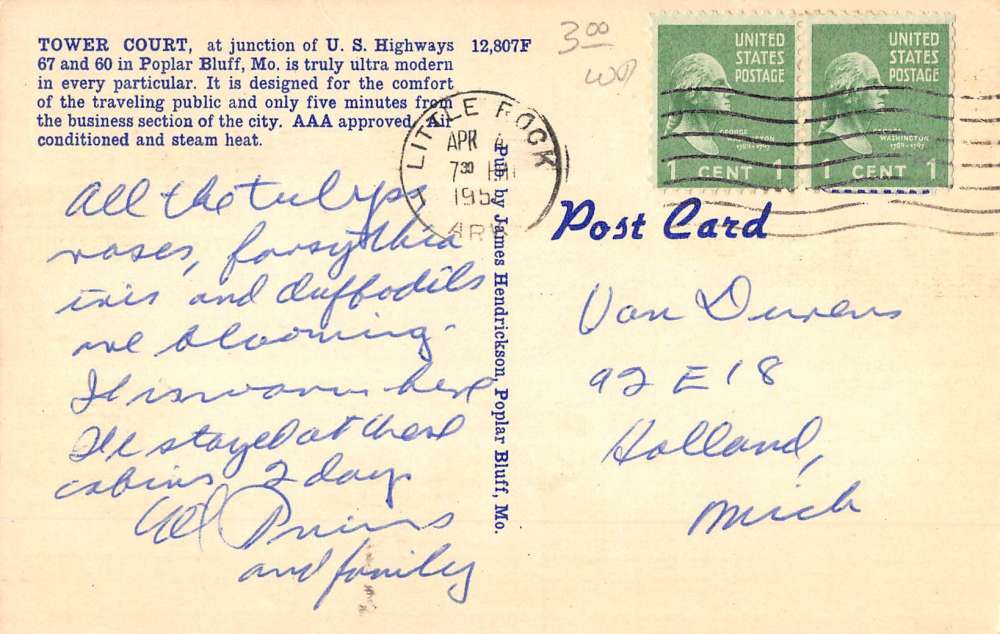 TOWER COURT, at junction of U. S. Highways
67 and 60 in Poplar Bluff, Mo. is truly ultra modern
in every particular. It is designed for the comfort
of the traveling public and only five minutes from
the business section of the city. AAA approved. Air
conditioned and steam heat.
12,807F
3.00
LITTLE ROCK
APR
7 30 PM
195
ARK
UNITED
STATES
POSTAGE
GEORGE
WASHINGTON
1789-1797
1 CENT 1
UNITED
STATES
POSTAGE
GEORGE
WASHINGTON
1789-1797
1 CENT 1
Post Card
Pub. by James Hendrickson, Poplar Bluff, Mo.
All the tulips
roses, forsythia
iris and daffodils
are blooming.
It is warm here
We stayed at these
cabins 2 days
Prins
and family
Van Durens
92 E 18
Holland,
Mich